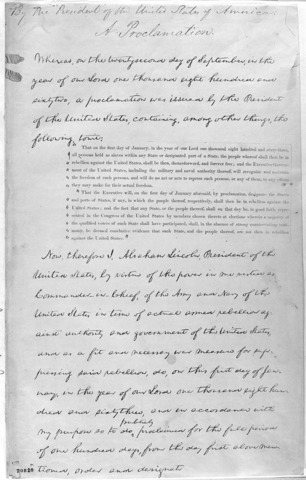 By the President of the United States of America:
A Proclamation.
Whereas, on the twentysecond day of September, in the
year of our Lord one thousand eight hundred and
sixtytwo, a proclamation was issued by the President
of the United States, containing, among other things, the
following, towit:
"That on the first day of January, in the year of our Lord one thousand eight hundred and sixty-three,
all persons held as slaves within any State or designated part of a State, the people whereof shall then be in
rebellion against the United States, shall be then, thenceforward, and forever free; and the Executive Govern-
ment of the United States, including the military and naval authority thereof, will recognize and maintain
the freedom of such persons, and will do no act or acts to repress such persons, or any of them, in any efforts
they may make for their actual freedom.
"That the Executive will, on the first day of January aforesaid, by proclamation, designate the States
and parts of States, if any, in which the people thereof, respectively, shall then be in rebellion against the
United States; and the fact that any State, or the people thereof, shall on that day be in good faith repre-
sented in the Congress of the United States by members chosen thereto at elections wherein a majority of
the qualified voters of such State shall have participated, shall, in the absence of strong countervailing testi-
mony, be deemed conclusive evidence that such State, and the people thereof, are not then in rebellion
against the United States."
Now, therefore I, Abraham Lincoln, President of the
United States, by virtue of the power in me vested as
Commander-in-Chief, of the Army and Navy of the
United States, in time of actual armed rebellion ag-
ainst authority and government of the United States,
and as a fit and necessary war measure for sup-
pressing said rebellion, do, on this first day of Jan-
uary, in the year of our Lord one thousand eight hun-
dred and sixtythree, and in accordance with
my purpose so to do, publicly proclaimed for the full period
of one hundred days, from the day first above men-
tioned, order and designate
20820